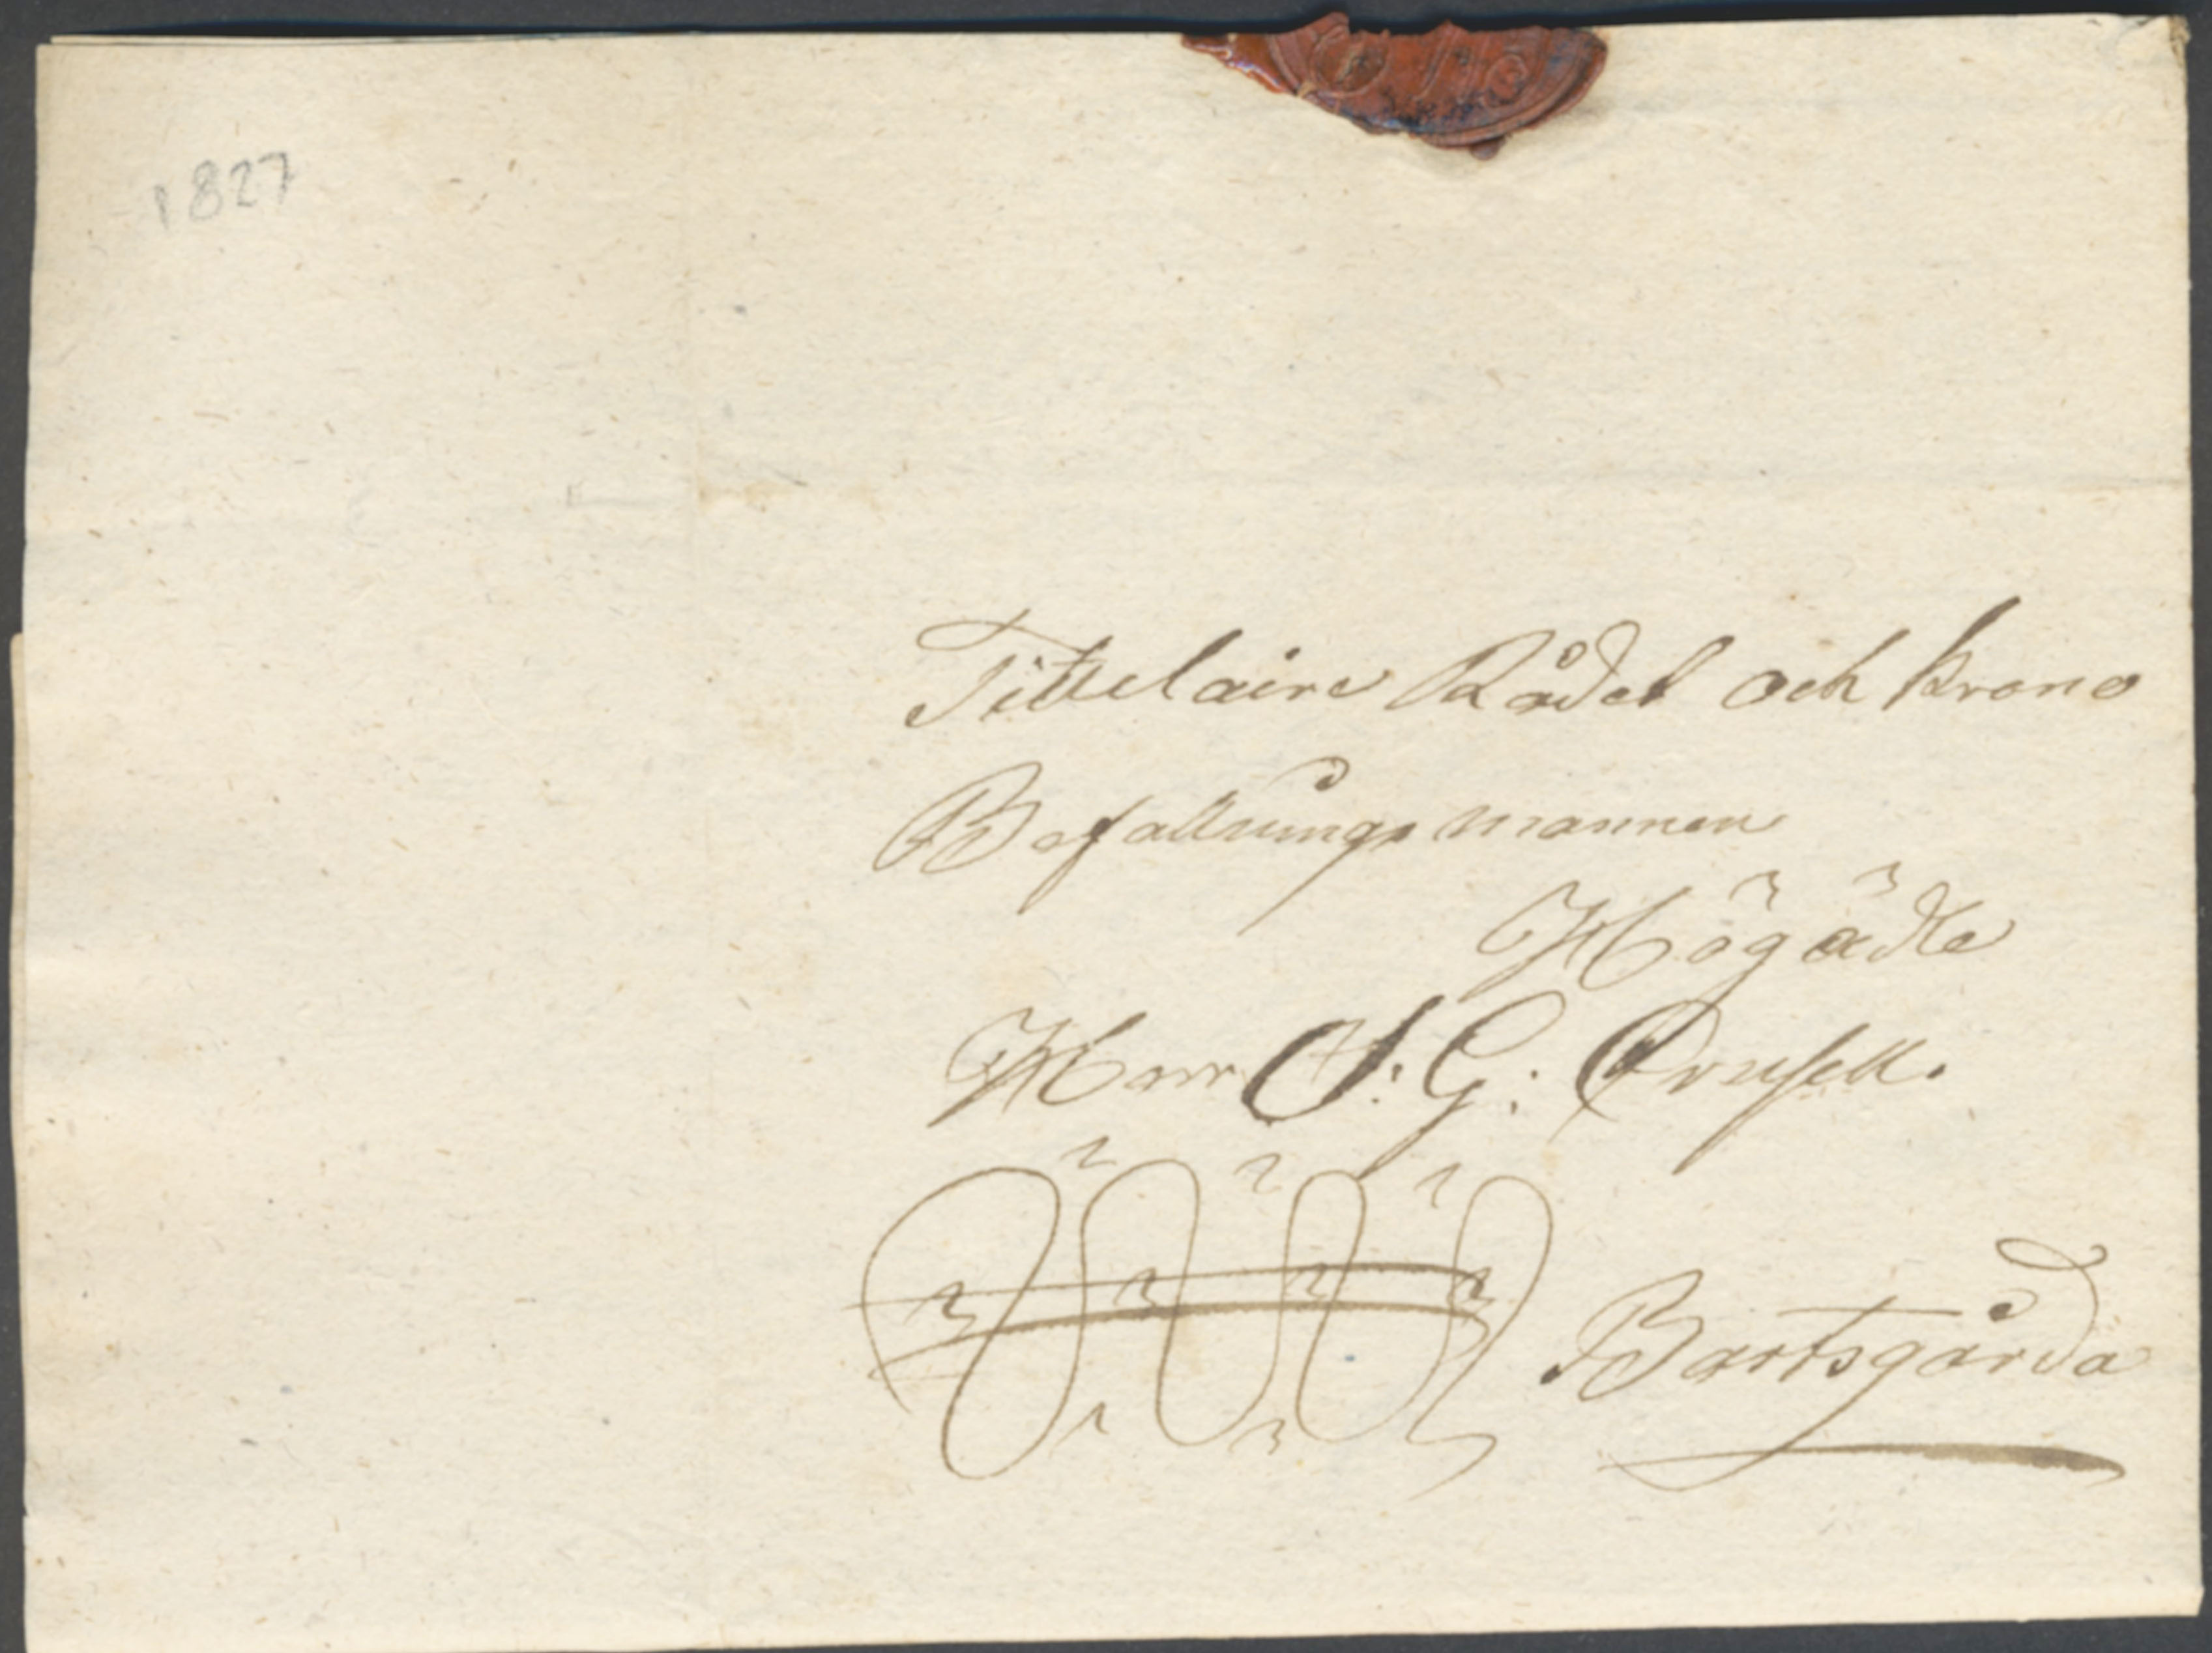 1827
Tittelaire Rådet och Krono
Befallningsmannen
Högädle
Herr G:
Bartsgårda